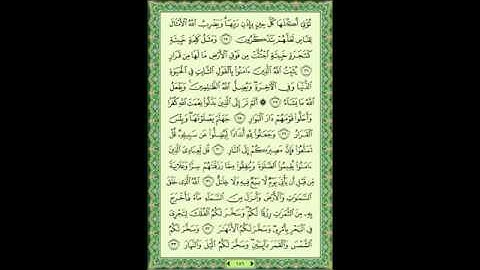 تُؤْتِي أُكُلَهَا كُلَّ حِينٍ بِإِذْنِ رَبِّهَا ۗ وَيَضْرِبُ ٱللَّهُ ٱلْأَمْثَالَ
لِلنَّاسِ لَعَلَّهُمْ يَتَذَكَّرُونَ ٢٥ وَمَثَلُ كَلِمَةٍ خَبِيثَةٍ
كَشَجَرَةٍ خَبِيثَةٍ ٱجْتُثَّتْ مِن فَوْقِ ٱلْأَرْضِ مَا لَهَا مِن قَرَارٍ
٢٦ يُثَبِّتُ ٱللَّهُ ٱلَّذِينَ ءَامَنُوا۟ بِٱلْقَوْلِ ٱلثَّابِتِ فِي ٱلْحَيَوٰةِ
ٱلدُّنْيَا وَفِي ٱلْءَاخِرَةِ ۖ وَيُضِلُّ ٱللَّهُ ٱلظَّٰلِمِينَ ۚ وَيَفْعَلُ
ٱللَّهُ مَا يَشَآءُ ٢٧ ۞ أَلَمْ تَرَ إِلَى ٱلَّذِينَ بَدَّلُوا۟ نِعْمَتَ ٱللَّهِ كُفْرًا
وَأَحَلُّوا۟ قَوْمَهُمْ دَارَ ٱلْبَوَارِ ٢٨ جَهَنَّمَ يَصْلَوْنَهَا ۖ وَبِئْسَ
ٱلْقَرَارُ ٢٩ وَجَعَلُوا۟ لِلَّهِ أَندَادًا لِّيُضِلُّوا۟ عَن سَبِيلِهِۦ ۗ قُلْ
تَمَتَّعُوا۟ فَإِنَّ مَصِيرَكُمْ إِلَى ٱلنَّارِ ٣٠ قُل لِّعِبَادِيَ ٱلَّذِينَ
ءَامَنُوا۟ يُقِيمُوا۟ ٱلصَّلَوٰةَ وَيُنفِقُوا۟ مِمَّا رَزَقْنَٰهُمْ سِرًّا وَعَلَانِيَةً
مِّن قَبْلِ أَن يَأْتِيَ يَوْمٌ لَّا بَيْعٌ فِيهِ وَلَا خِلَٰلٌ ٣١ ٱللَّهُ ٱلَّذِي خَلَقَ
ٱلسَّمَٰوَٰتِ وَٱلْأَرْضَ وَأَنزَلَ مِنَ ٱلسَّمَآءِ مَآءً فَأَخْرَجَ
بِهِۦ مِنَ ٱلثَّمَرَٰتِ رِزْقًا لَّكُمْ ۖ وَسَخَّرَ لَكُمُ ٱلْفُلْكَ لِتَجْرِيَ
فِي ٱلْبَحْرِ بِأَمْرِهِۦ ۖ وَسَخَّرَ لَكُمُ ٱلْأَنْهَٰرَ ٣٢ وَسَخَّرَ لَكُمُ
ٱلشَّمْسَ وَٱلْقَمَرَ دَآئِبَيْنِ ۖ وَسَخَّرَ لَكُمُ ٱلَّيْلَ وَٱلنَّهَارَ ٣٣